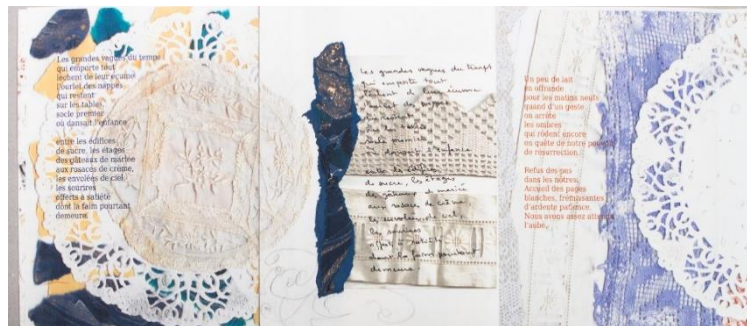 Les grandes vagues du temps
qui emporte tout
lèchent de leur écume
l'ourlet des nappes
qui restent
sur les tables,
socle premier
où dansait l'enfance
entre les édifices
de sucre, les étages
des gâteaux de mariée
aux rosaces de crème,
les envolées de ciel,
les sourires
offerts à satiété
dont la faim pourtant
demeure.
Les grandes vagues du temps
qui emporte tout
lèchent de leur écume
l'ourlet des nappes
qui restent
sur les tables
socle premier
où dansait l'enfance
entre les édifices
de sucre, les étages
des gâteaux de mariée
aux rosaces de crème
les envolées de ciel,
les sourires
offerts à satiété
dont la faim pourtant
demeure.
Un peu de lait
en offrande
pour les matins neufs
quand d'un geste
on arrête
les ombres
qui rôdent encore
en quête de notre
de résurrection.
Refus des pas
dans les nôtres.
Accueil des pages
blanches, frémissantes
d'ardente patience.
Nous avons assez attendu
l'aube.